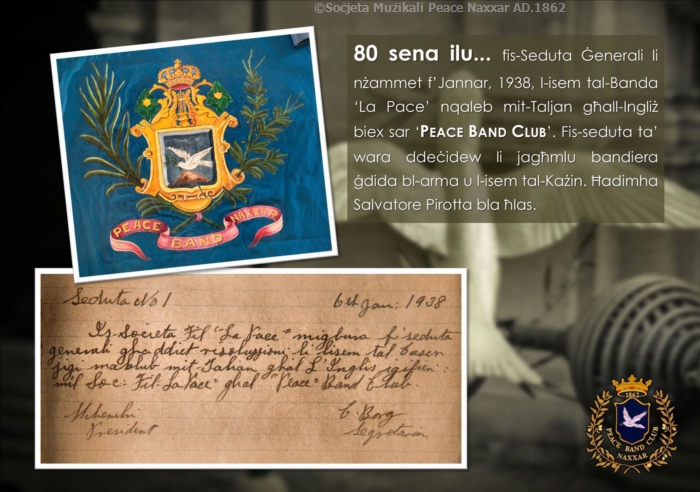 ©Soċjeta Mużikali Peace Naxxar AD.1862
80 sena ilu... fis-Seduta Ġenerali li
nżammet f’Jannar, 1938, l-isem tal-Banda
‘La Pace’ nqaleb mit-Taljan għall-Ingliż
biex sar ‘PEACE BAND CLUB’. Fis-seduta ta’
wara ddeċidew li jagħmlu bandiera
ġdida bl-arma u l-isem tal-Każin. Ħadimha
Salvatore Pirotta bla ħlas.
PEACE BAND NAXXAR
Seduta No 1 6th Jan: 1938
Is-Società Fil "La Pace" miġbura f'seduta
generali għaddiet risoluzzjoni li l'isem tal
jiġi maqlub mit-Taljan għal l'Inglis iġifieri:
mil Soc: Fil. La Pace" għal "Peace" Band Club.
C. Borg
President Segretarju
1862
PEACE BAND CLUB
NAXXAR